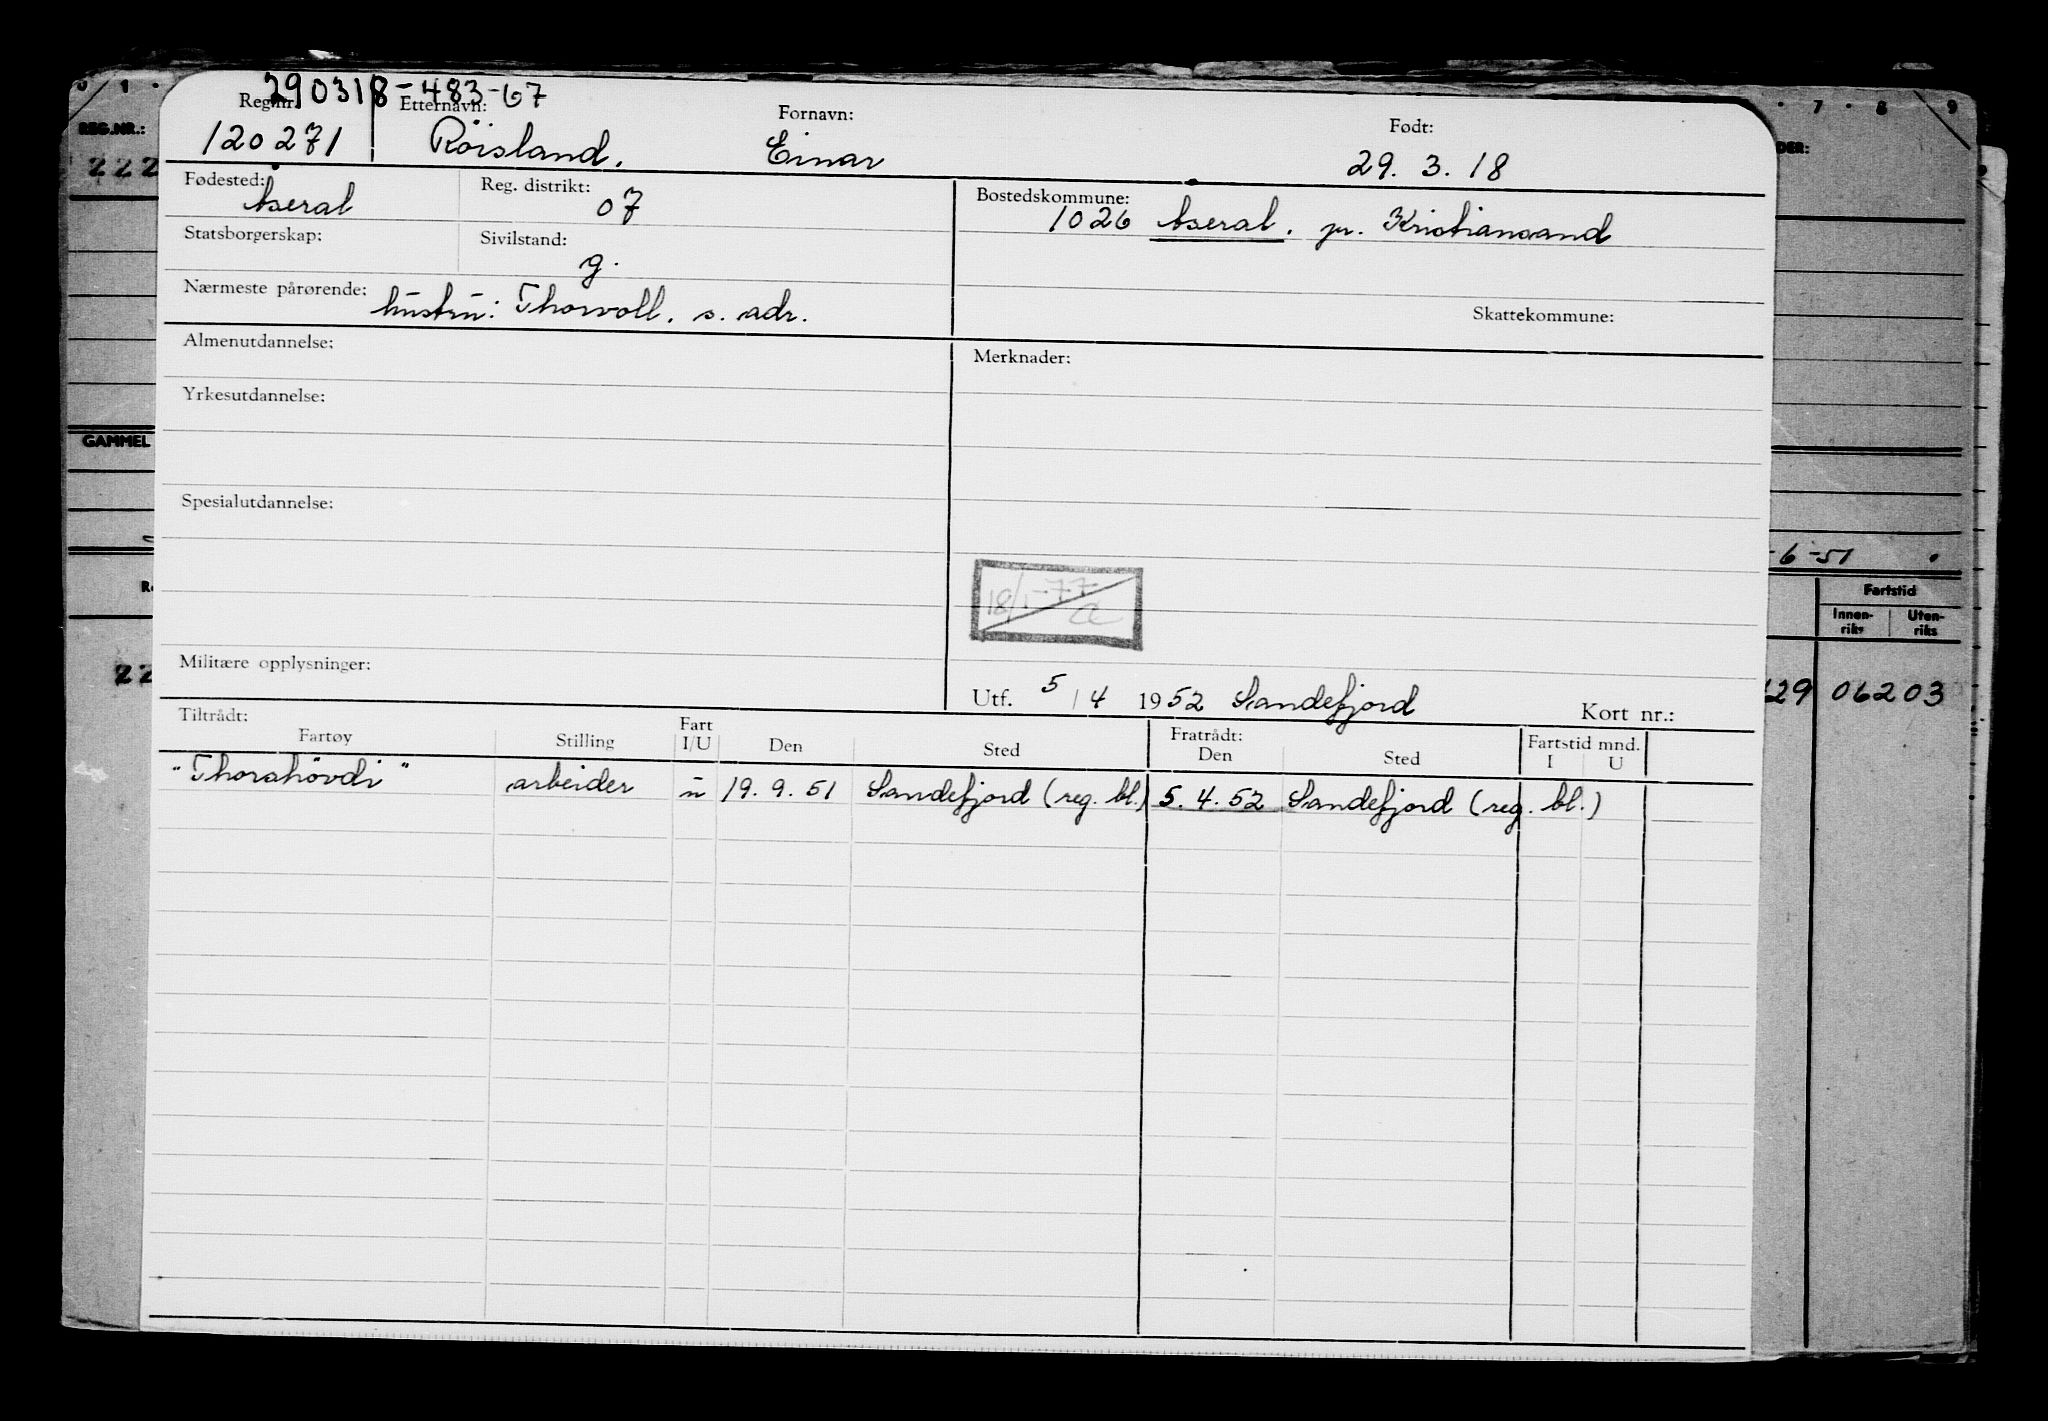 290318-483-67
Reg.nr. Etternavn: Fornavn: Født:
120271 Röisland. Einar 29. 3. 18
Fødested: Åseral Reg. distrikt: 07 Bostedskommune: 1026 Åseral. pr. Kristiansand
Statsborgerskap: Sivilstand: g.
Nærmeste pårørende: hustru: Thorvoll. s. adr. Skattekommune:
Almenutdannelse: Merknader:
Yrkesutdannelse:
Spesialutdannelse:
18/1-77
Militære opplysninger:
Utf. 5/4 1952 Sandefjord Kort nr.:
Tiltrådt: Fratrådt:
Fartøy Stilling Fart I/U Den Sted Den Sted Fartstid mnd. I U
"Thorshövdi" arbeider u 19. 9. 51 Sandefjord (reg. bl.) 5. 4. 52 Sandefjord (reg. bl.)
0 1 7 8 9
REG.NR.:
222
GAMMEL
22
DER:
-6-51
Fartstid
Innen-riks Uten-riks
29 062 03